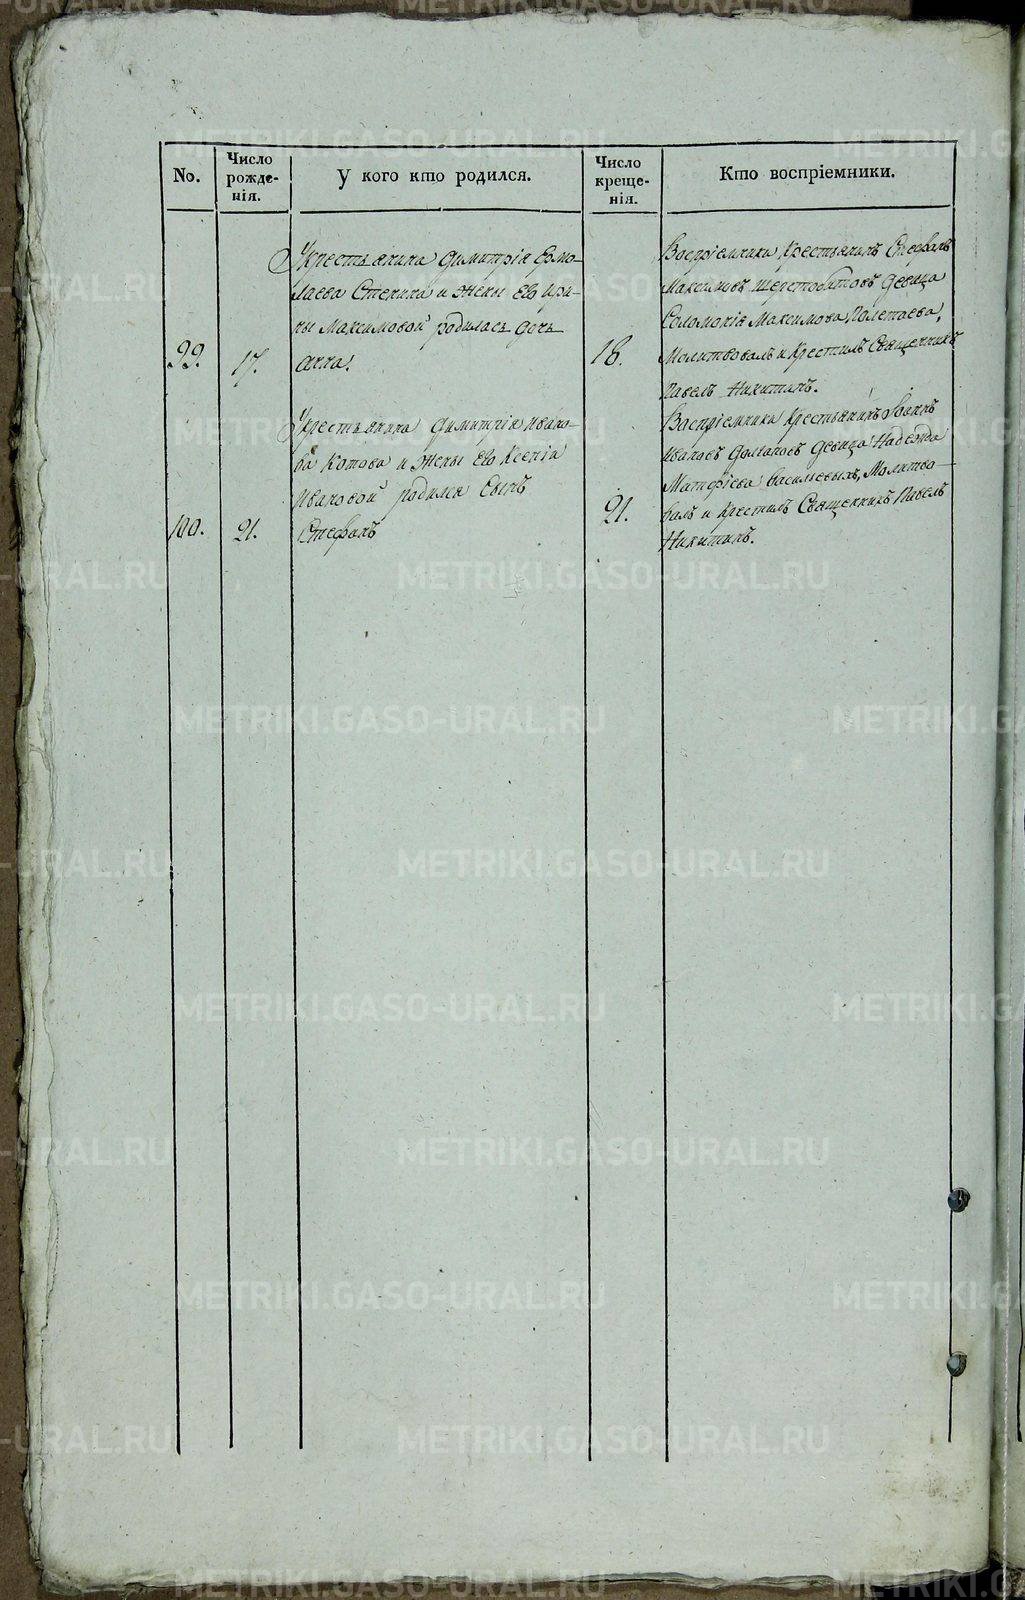 No.
Число рожде-нія.
У кого кто родился.
Число креще-нія.
Кто воспріемники.
Укрестьянина Димитрія Ермо-
лаева Стенина и жены Его Ири-
ны Максимовой родилась дочь
99. 17. Анна.
18.
Воспріемники Крестьянинъ Стефанъ
Максимовъ Шерстобитовъ Девица
Соломонія Максимова Полетаева,
Молитвовалъ и Крестилъ Священникъ
Павелъ Никитинъ.
Укрестьянина Димитрія Ивано-
ва Котова и жены Его Ксеніи
Ивановой родился Сынъ
100. 21. Стефанъ
21.
Воспріемники Крестьянинъ Іоаннъ
Ивановъ Девица Надежда
Матфіева Васильевыхъ, Молитво-
валъ и Крестилъ Священникъ Павелъ
Никитинъ.
METRIKI.GASO-URAL.RU